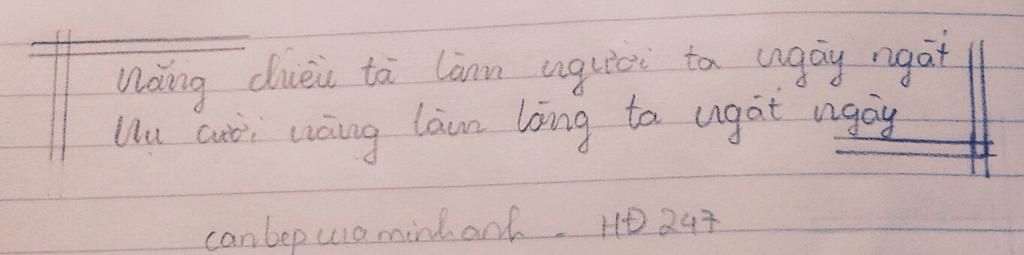 Nắng chiều tà làm người ta ngây ngất
Nụ cười nàng làm lòng ta ngất ngây
canbepcuaminhanh - HĐ 247